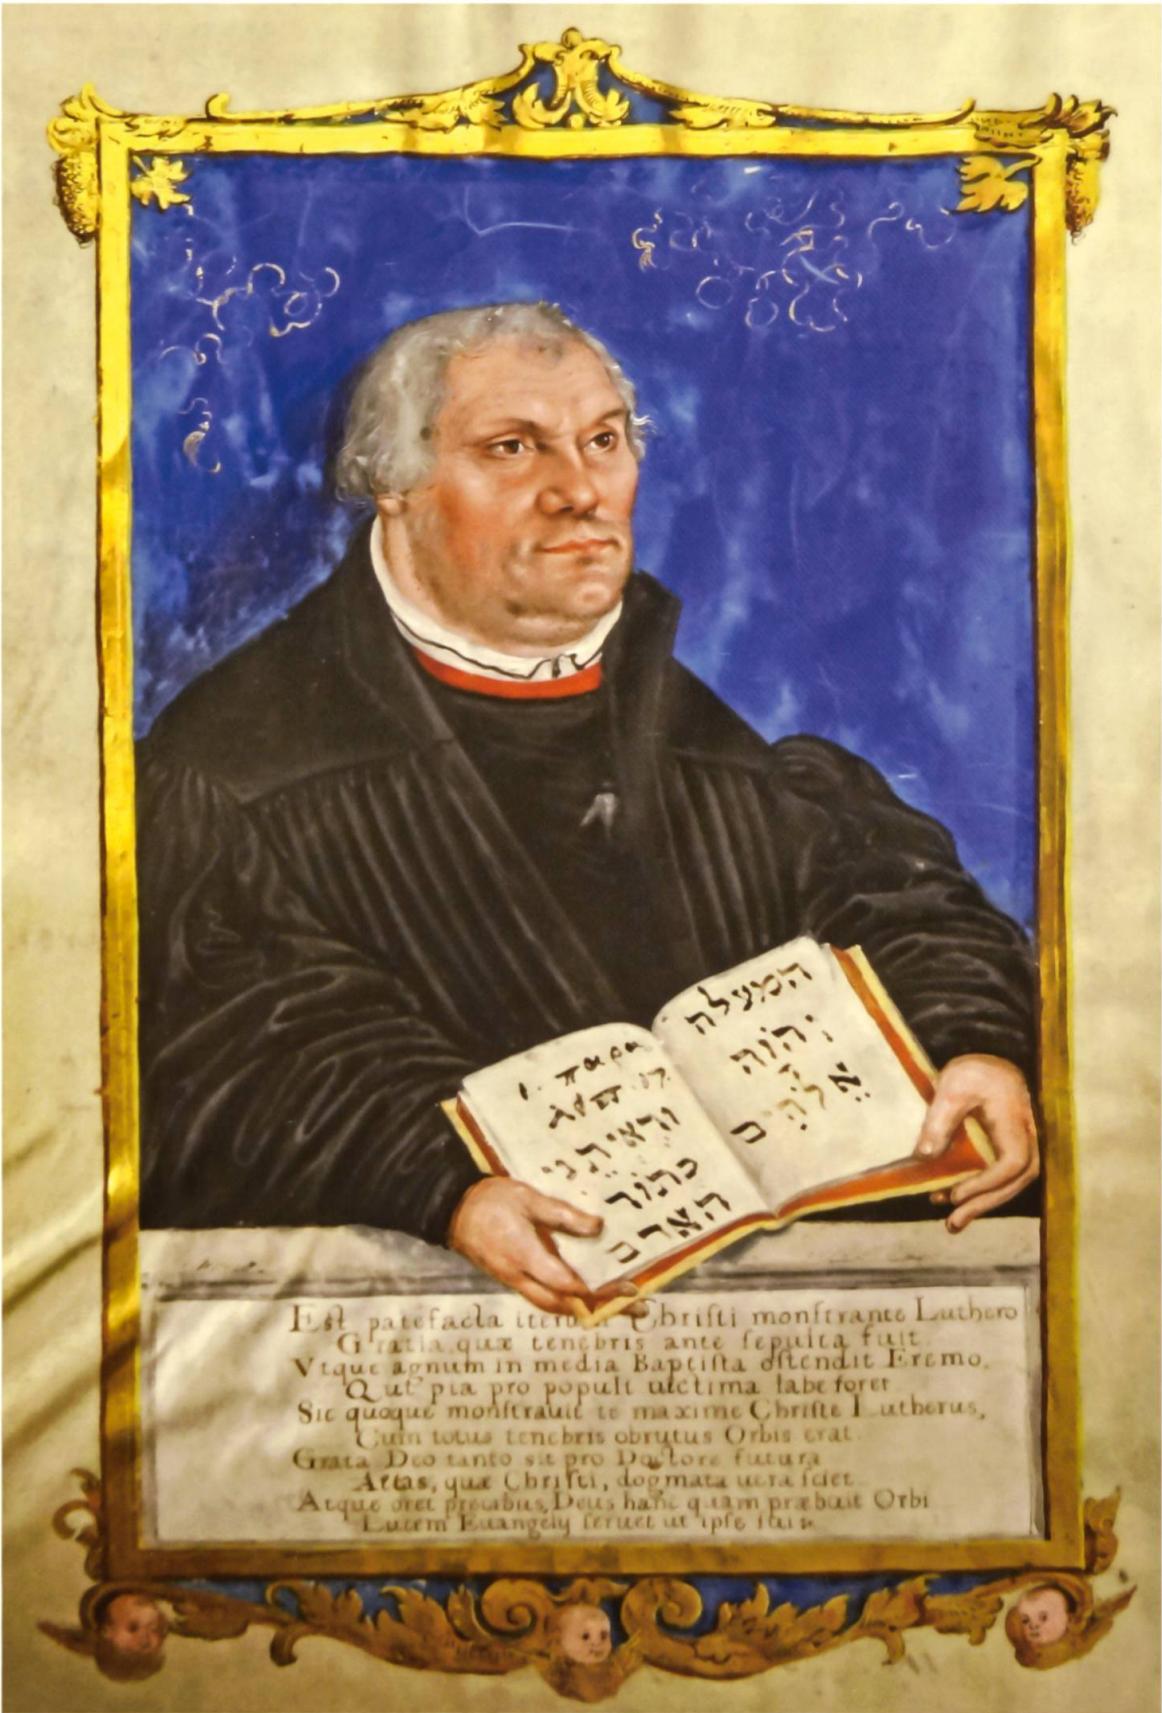 1. παρα
וראיתני
כתור
האדם
המעלה
יהוה
אלהים
Eſt patefacta Chriſti monſtrante Luthero
Gratia quæ tenebris ante ſepulta fuit.
Vtque agnum in media Baptiſta oſtendit Eremo,
Qui pia pro populi uictima labe foret
Sic quoque monſtrauit te maxime Chriſte Lutherus,
Cum totus tenebris obrutus Orbis erat.
Grata Deo tanto sit pro Doctore futura
Aetas, quæ Chriſti, dogmata uera ſciet
Atque oret precibus, Deus hanc quam præbuit Orbi
Lucem Euangelij ſeruet ut ipſe ſuis